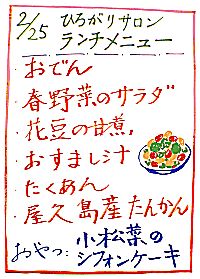 2/25 ひろがりサロン
ランチメニュー
・おでん
・春野菜のサラダ
・花豆の甘煮
・おすまし汁
・たくあん
・屋久島産たんかん
おやつ:小松菜の
シフォンケーキ